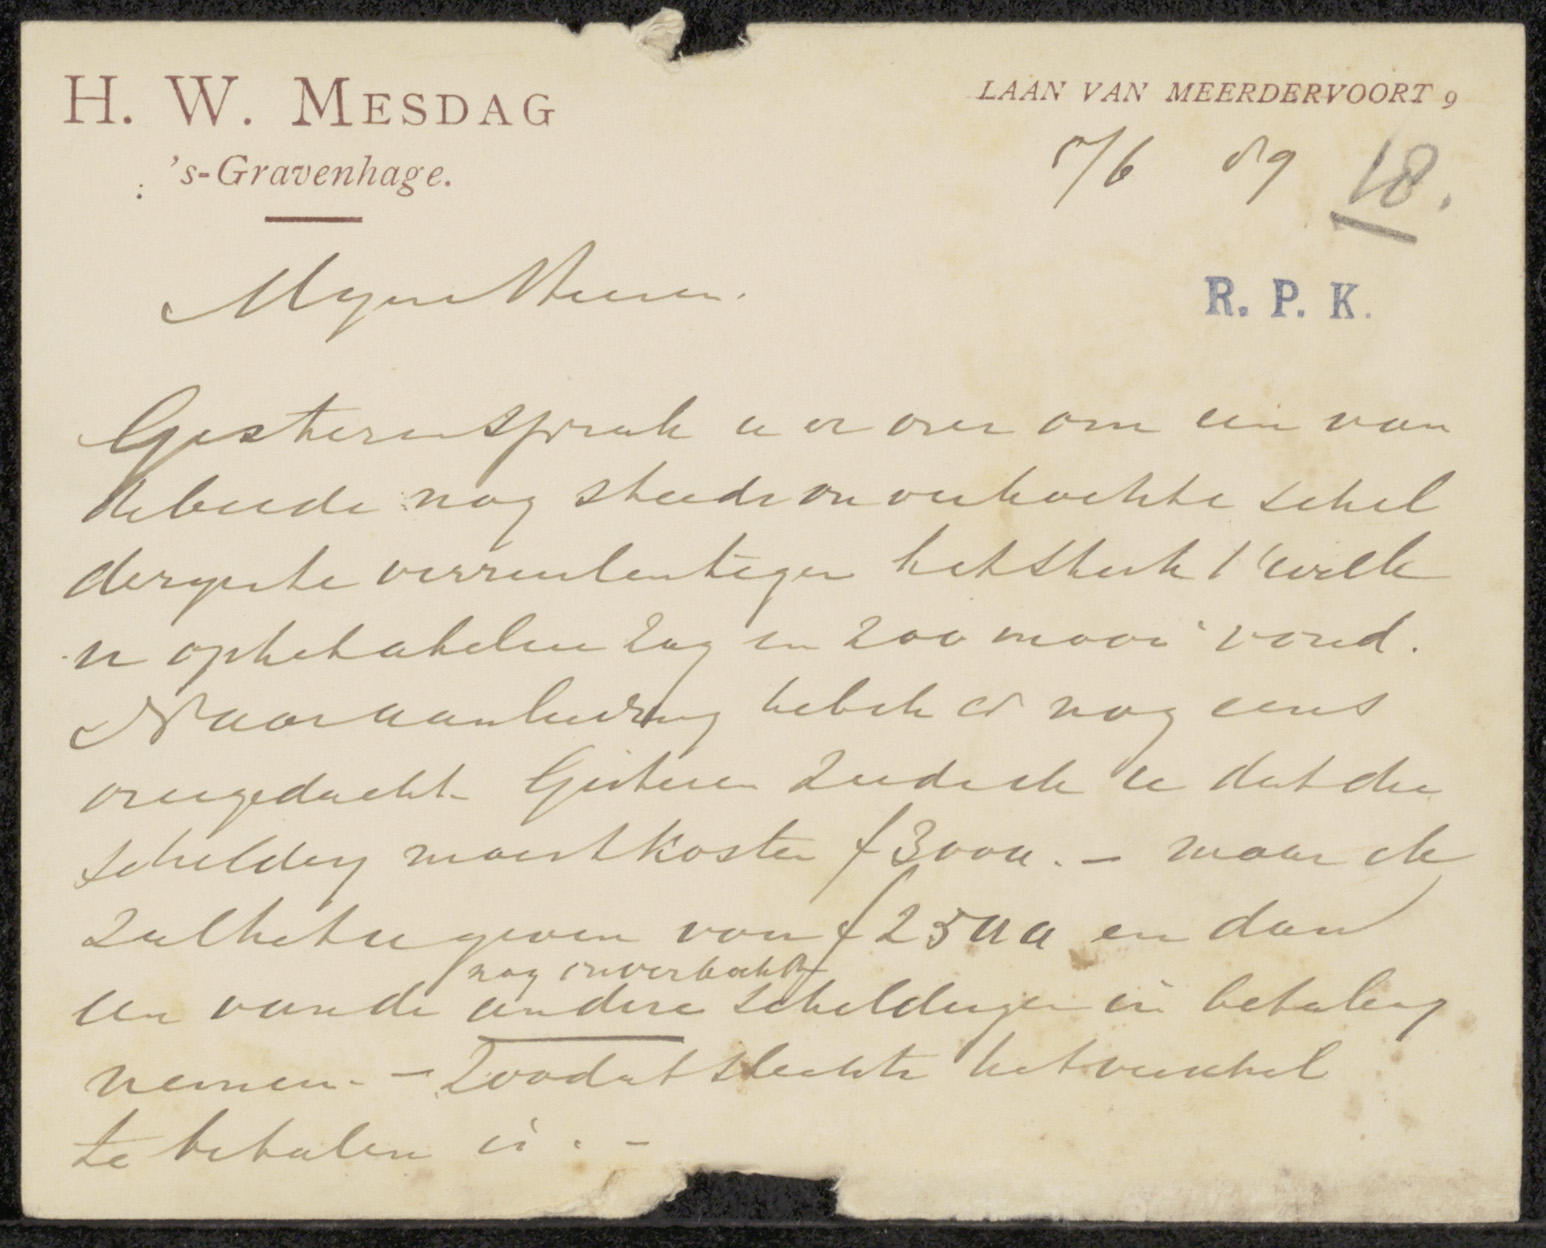 H. W. MESDAG
's-Gravenhage.
LAAN VAN MEERDERVOORT 9
5/6 89 18.
R. P. K.
Mijne Heeren.
Gisteren sprak u er over om een van
de beide nog steeds onverkochte schil
derijen te verruilen tegen het stuk 't welk
u op het atelier zag en zoo mooi vond.
Naar aanleiding heb ik er nog eens
over gedacht Gisteren zeide ik u dat die
schilderij moest kosten f 3000.- maar ik
zal het u geven voor f 2500 en dan
een van de andere schilderijen in betaling
nog onverkochte
nemen. - Zoodat slechts het verschil
te betalen is. -